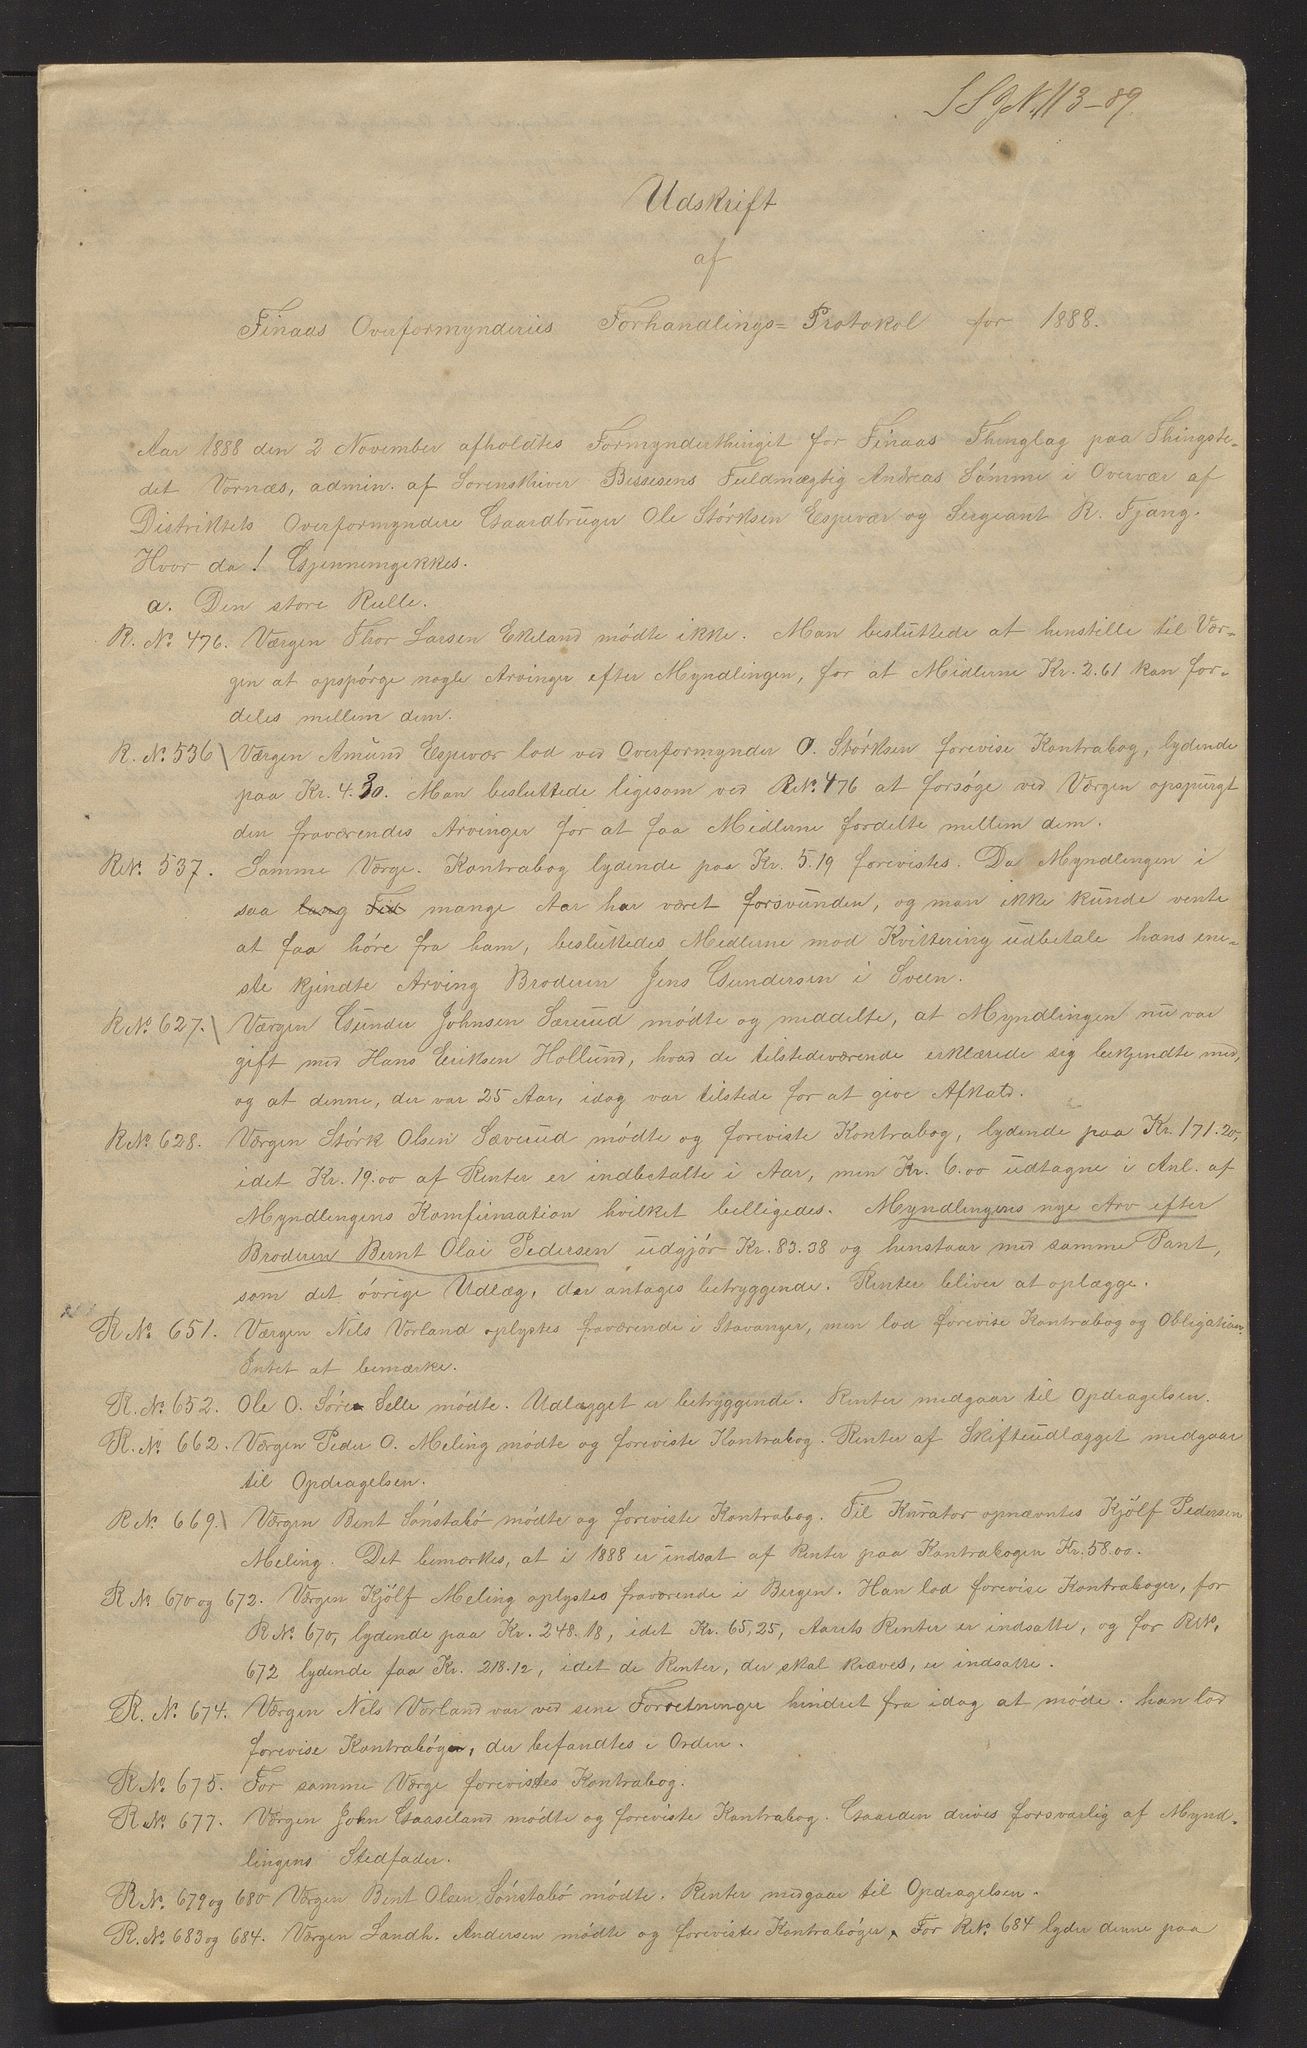 S S J N. 113-89.
Udskrift
af
Finaas Overformynderiis Forhandlings= Protokol for 1888.
Aar 1888 den 2 November afholdtes Formynderthinget for Finaas Thinglag paa Thingste-
det Vornæs, admin. af Sorenskriver Bessesens Fuldmægtig Andreas Sømme i Overvær af
Distriktets Overformyndere Gaardbruger Ole Størksen Espevær og Sergeant R. Fjang.
Hvor da! Gjennemgikkes.
a. Den store Rulle.
R. No. 476. Værgen Thor Larsen Ekeland mødte ikke. Man besluttede at henstille til Vær-
gen at opspørge nogle Arvinger efter Myndlingen, for at Midlerne Kr. 2.61 kan for-
deles mellem dem.
R. No. 536\ Værgen Amund Espevær lod ved Overformynder O. Størksen forevise Kontrabog, lydende
paa Kr. 4.30. Man besluttede ligesom ved RNo. 476 at forsøge ved Værgen opspurgt
den fraværendes Arvinger for at faa Midlerne fordelte mellem dem.
RNo. 537. Samme Værge. Kontrabog lydende paa Kr. 5.19 forevistes. Da Myndlingen i
saa lang Tid mange Aar har været forsvunden, og man ikke kunde vente
at faa høre fra ham, besluttedes Midlerne mod Kvittering udbetale hans ene-
ste kjendte Arving Broderen Jens Gundersen i Sveen.
RNo. 627.\ Værgen Gunder Johnsen Særeud mødte og meddelte, at Myndlingen nu var
gift med Hans Eriksen Hollund, hvad de tilstedeværende erklærede sig bekjendte med,
og at denne, der var 25 Aar, idag var tilstede for at give Afkald.
RNo. 628. Værgen Størk Olsen Sævereud mødte og foreviste Kontrabog, lydende paa Kr. 171.20,
idet Kr. 19.00 af Renter er indbetalte i Aar, men Kr. 6.00 udtagne i Anl. af
Myndlingens Komfirmation hvilket billigedes. Myndlingens nye Arv efter
Broderen Bernt Olai Pedersen udgjør Kr. 83.38 og henstaar med samme Pant,
som det øvrige Udlæg, der antages betryggende. Renter bliver at oplægge.
R No. 651. Værgen Nils Vorland oplystes fraværende i Stavanger, men lod forevise Kontrabog og Obligation.
Intet at bemærke.
R. No. 652. Ole O. Søre Selle mødte. Udlægget er betryggende. Renter medgaar til Opdragelsen.
R. No. 662. Værgen Peder O. Meling mødte og foreviste Kontrabog. Renter af Skifteudlægget medgaar
til Opdragelsen.
R No. 669.\ Værgen Bent Sønstabø mødte og foreviste Kontrabog. Til Kurator opnævntes Kjølf Pedersen
Meling. Det bemærkes, at i 1888 er indsat af Renter paa Kontrabogen Kr. 58.00.
R No. 670 og 672. Værgen Kjølf Meling oplystes fraværende i Bergen. Han lod forevise Kontrabøger, for
R No. 670, lydende paa Kr. 248.18, idet Kr. 65,25, Aarets Renter er indsatte, og for RNo.
672 lydende paa Kr. 218.12, idet de Renter, der skal kræves, er indsatte.
R. No. 674. Værgen Nils Vorland var ved sine Forretninger hindret fra idag at møde. han lod
forevise Kontrabøger, der befandtes i Orden.
R No. 675. For samme Værge forevistes Kontrabog.
R No. 677. Værgen John Gaaseland mødte og foreviste Kontrabog. Gaarden drives forsvarlig af Mynd-
lingens Stedfader.
R No. 679 og 680 Værgen Bent Olsen Sønstabø mødte. Renter medgaar til Opdragelsen.
R. No. 683 og 684. Værgen Landh. Andersen mødte og foreviste Kontrabøger. For RNo. 684 lyder denne paa